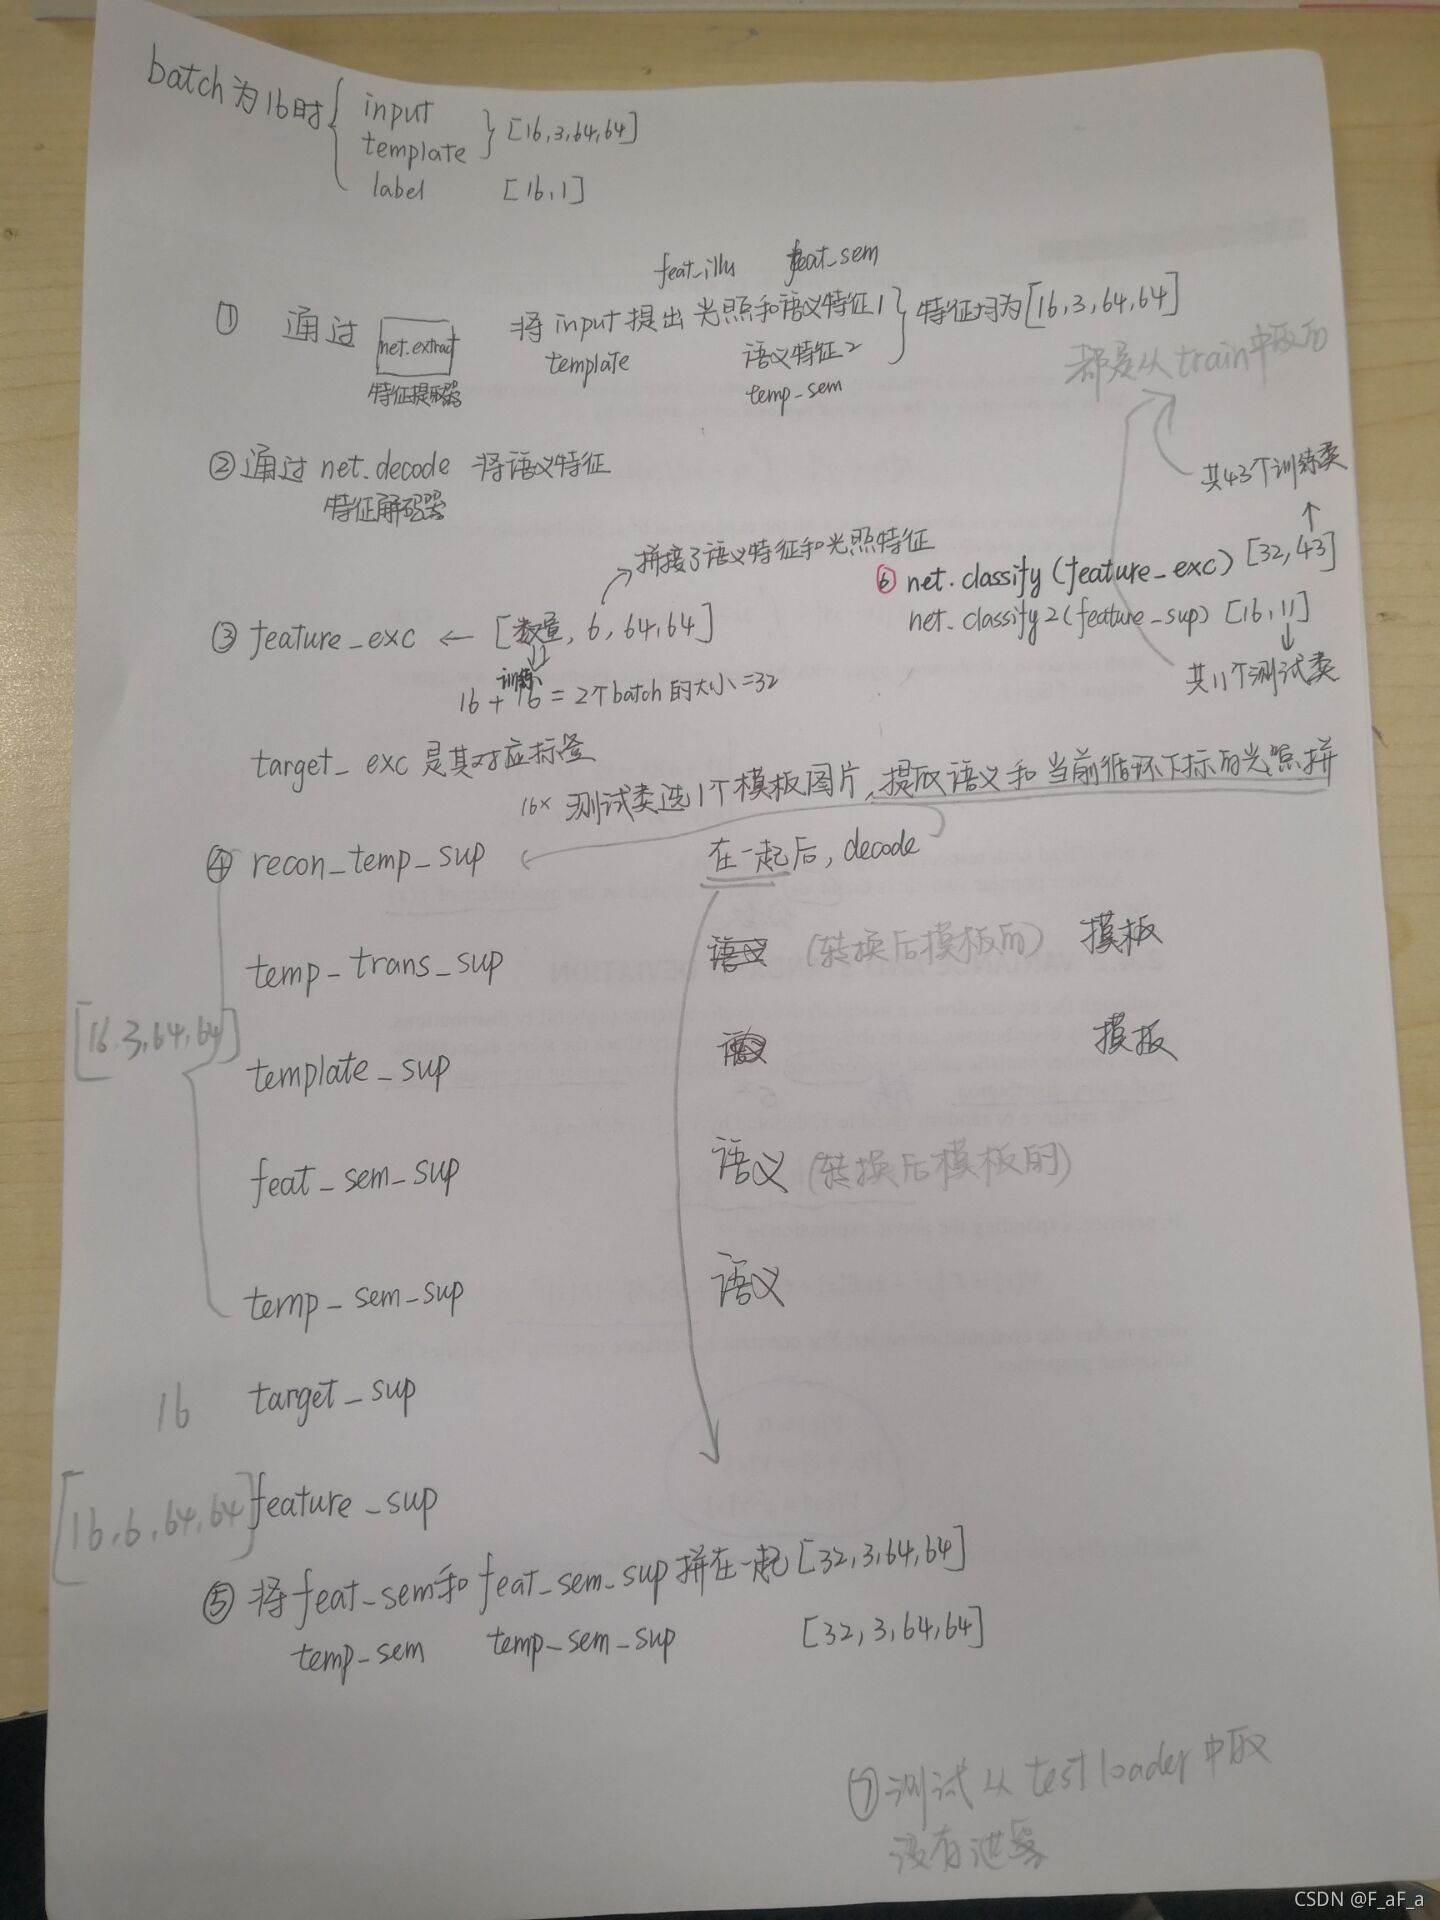 batch为16时 { input
template } [16,3,64,64]
label [16,1]
feat_illu feat_sem
① 通过 net.extract 将 input 提出 光照和语义特征1 } 特征均为[16,3,64,64]
特征提取器 template 语义特征2
temp_sem
都是从train中取的
② 通过 net.decode 将语义特征
特征解码器
共43个训练类
拼接了语义特征和光照特征
⑥ net.classify(feature_exc) [32,43]
net.classify2(feature_sup) [16,11]
共11个测试类
③ feature_exc ← [数量, 6, 64,64]
训练
16 + 16 = 2个batch的大小=32
target_exc 是其对应标签
16× 测试类选1个模板图片,提取语义和当前循环下标的光照拼
④ recon_temp_sup 在一起后, decode
temp_trans_sup (转换后模板的) 模板
[16,3,64,64]
template_sup 模板
feat_sem_sup 语义 (转换后模板的)
temp_sem_sup 语义
16 target_sup
[16,6,64,64] feature_sup
⑤ 将feat_sem和 feat_sem_sup拼在一起 [32,3,64,64]
temp_sem temp_sem_sup [32,3,64,64]
⑦ 测试从 testloader 中取
没有泄露
CSDN @F_aF_a